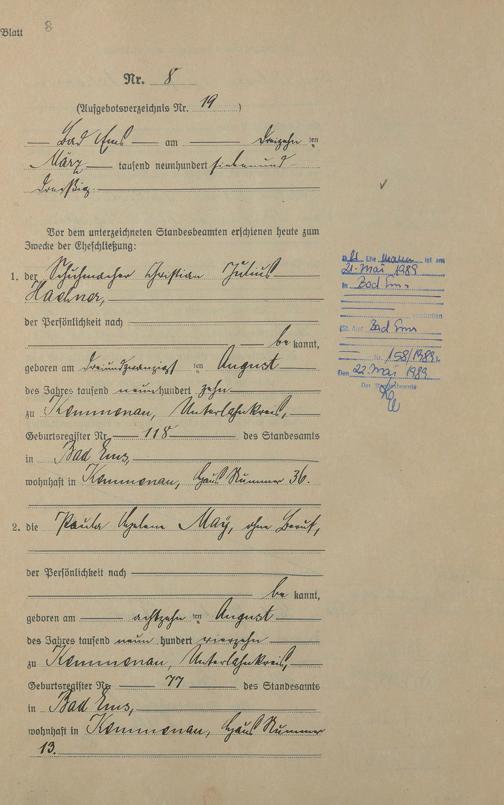 Blatt 8
Nr. 8
(Aufgebotsverzeichnis Nr. 19)
Bad Ems am dreizehn ten
März tausend neunhundert siebenund
dreißig.
Vor dem unterzeichneten Standesbeamten erschienen heute zum
Zwecke der Eheschließung:
1. der Schuhmacher Christian Julius
der Persönlichkeit nach
be kannt,
geboren am dreiundzwanzigst ten August
des Jahres tausend neunhundert zehn
zu Kemmenau, Unterlahnkreis,
Geburtsregister Nr. 118 des Standesamts
in Bad Ems,
wohnhaft in Kemmenau, Haus Nummer 36.
2. die Paula Helene May, ohne Beruf,
der Persönlichkeit nach
be kannt,
geboren am achtzehn ten August
des Jahres tausend neun hundert vierzehn
zu Kemmenau, Unterlahnkreis,
Geburtsregister Nr. 77 des Standesamts
in Bad Ems,
wohnhaft in Kemmenau, Haus Nummer
13.
Ehemann ist am
21. Mai 1989
in Bad Ems
verstorben
St. Amt Bad Ems
Nr. 158/1989
Den 22. Mai 1989
Der Standesbeamte